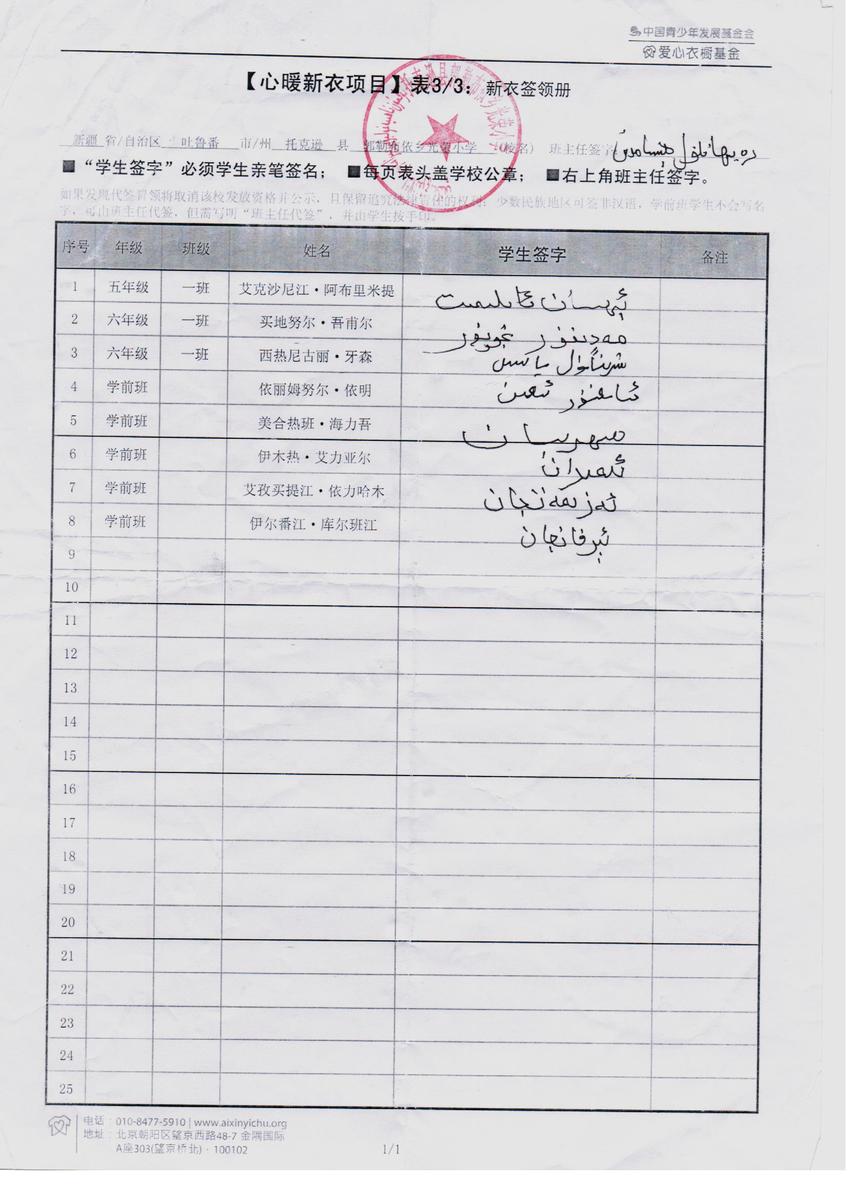 中国青少年发展基金会
爱心衣橱基金
【心暖新衣项目】表3/3：新衣签领册
新疆 省/自治区 吐鲁番 市/州 托克逊 县 郭勒布依乡光荣小学 (校名) 班主任签字
■“学生签字”必须学生亲笔签名； ■每页表头盖学校公章； ■右上角班主任签字。
如果发现代签冒领将取消该校发放资格并公示，且保留追究法律责任的权利；少数民族地区可签非汉语，学前班学生不会写名
字，可由班主任代签，但需写明“班主任代签”，并由学生按手印。
序号 年级 班级 姓名 学生签字 备注
1 五年级 一班 艾克沙尼江·阿布里米提
2 六年级 一班 买地努尔·吾甫尔
3 六年级 一班 西热尼古丽·牙森 شىرىنگۈل ياسىن
4 学前班 依丽姆努尔·依明
5 学前班 美合热班·海力吾
6 学前班 伊木热·艾力亚尔 ئىمران
7 学前班 艾孜买提江·依力哈木
8 学前班 伊尔番江·库尔班江 ئېرفانجان
9
10
11
12
13
14
15
16
17
18
19
20
21
22
23
24
25
电话：010-8477-5910 | www.aixinyichu.org
地址：北京朝阳区望京西路48-7 金隅国际
A座303(望京桥北)·100102
1/1